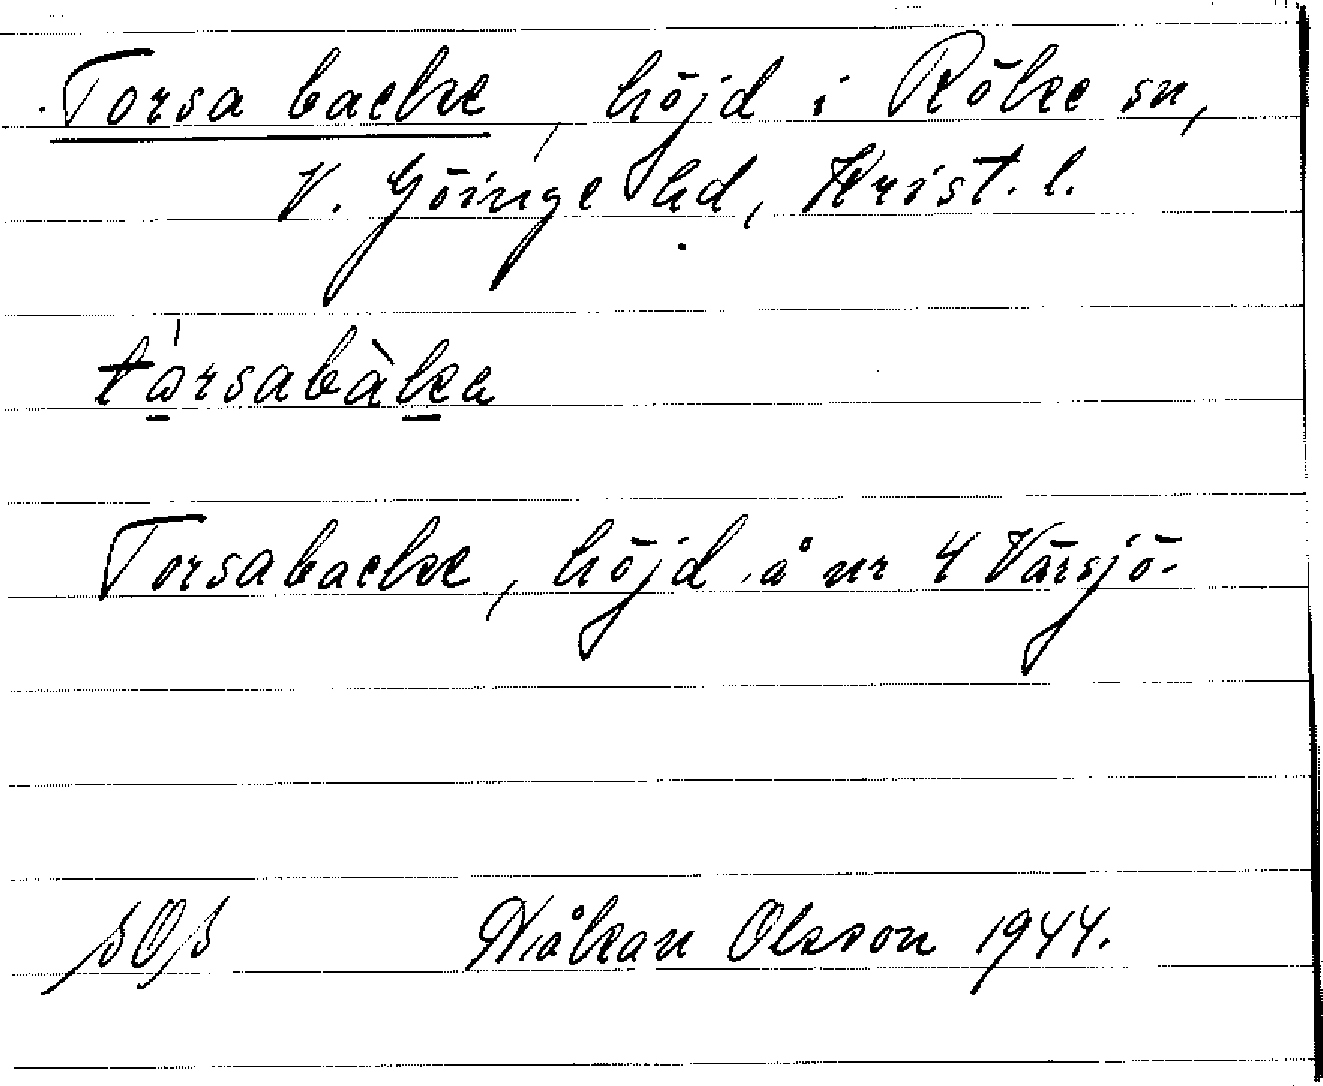 Torsa backe, höjd i Röke sn,
V. Göinge hd, Krist. l.
tórsabàka
Torsabacke, höjd å nr 4 Värsjö.
SOS Håkan Olsson 1944.